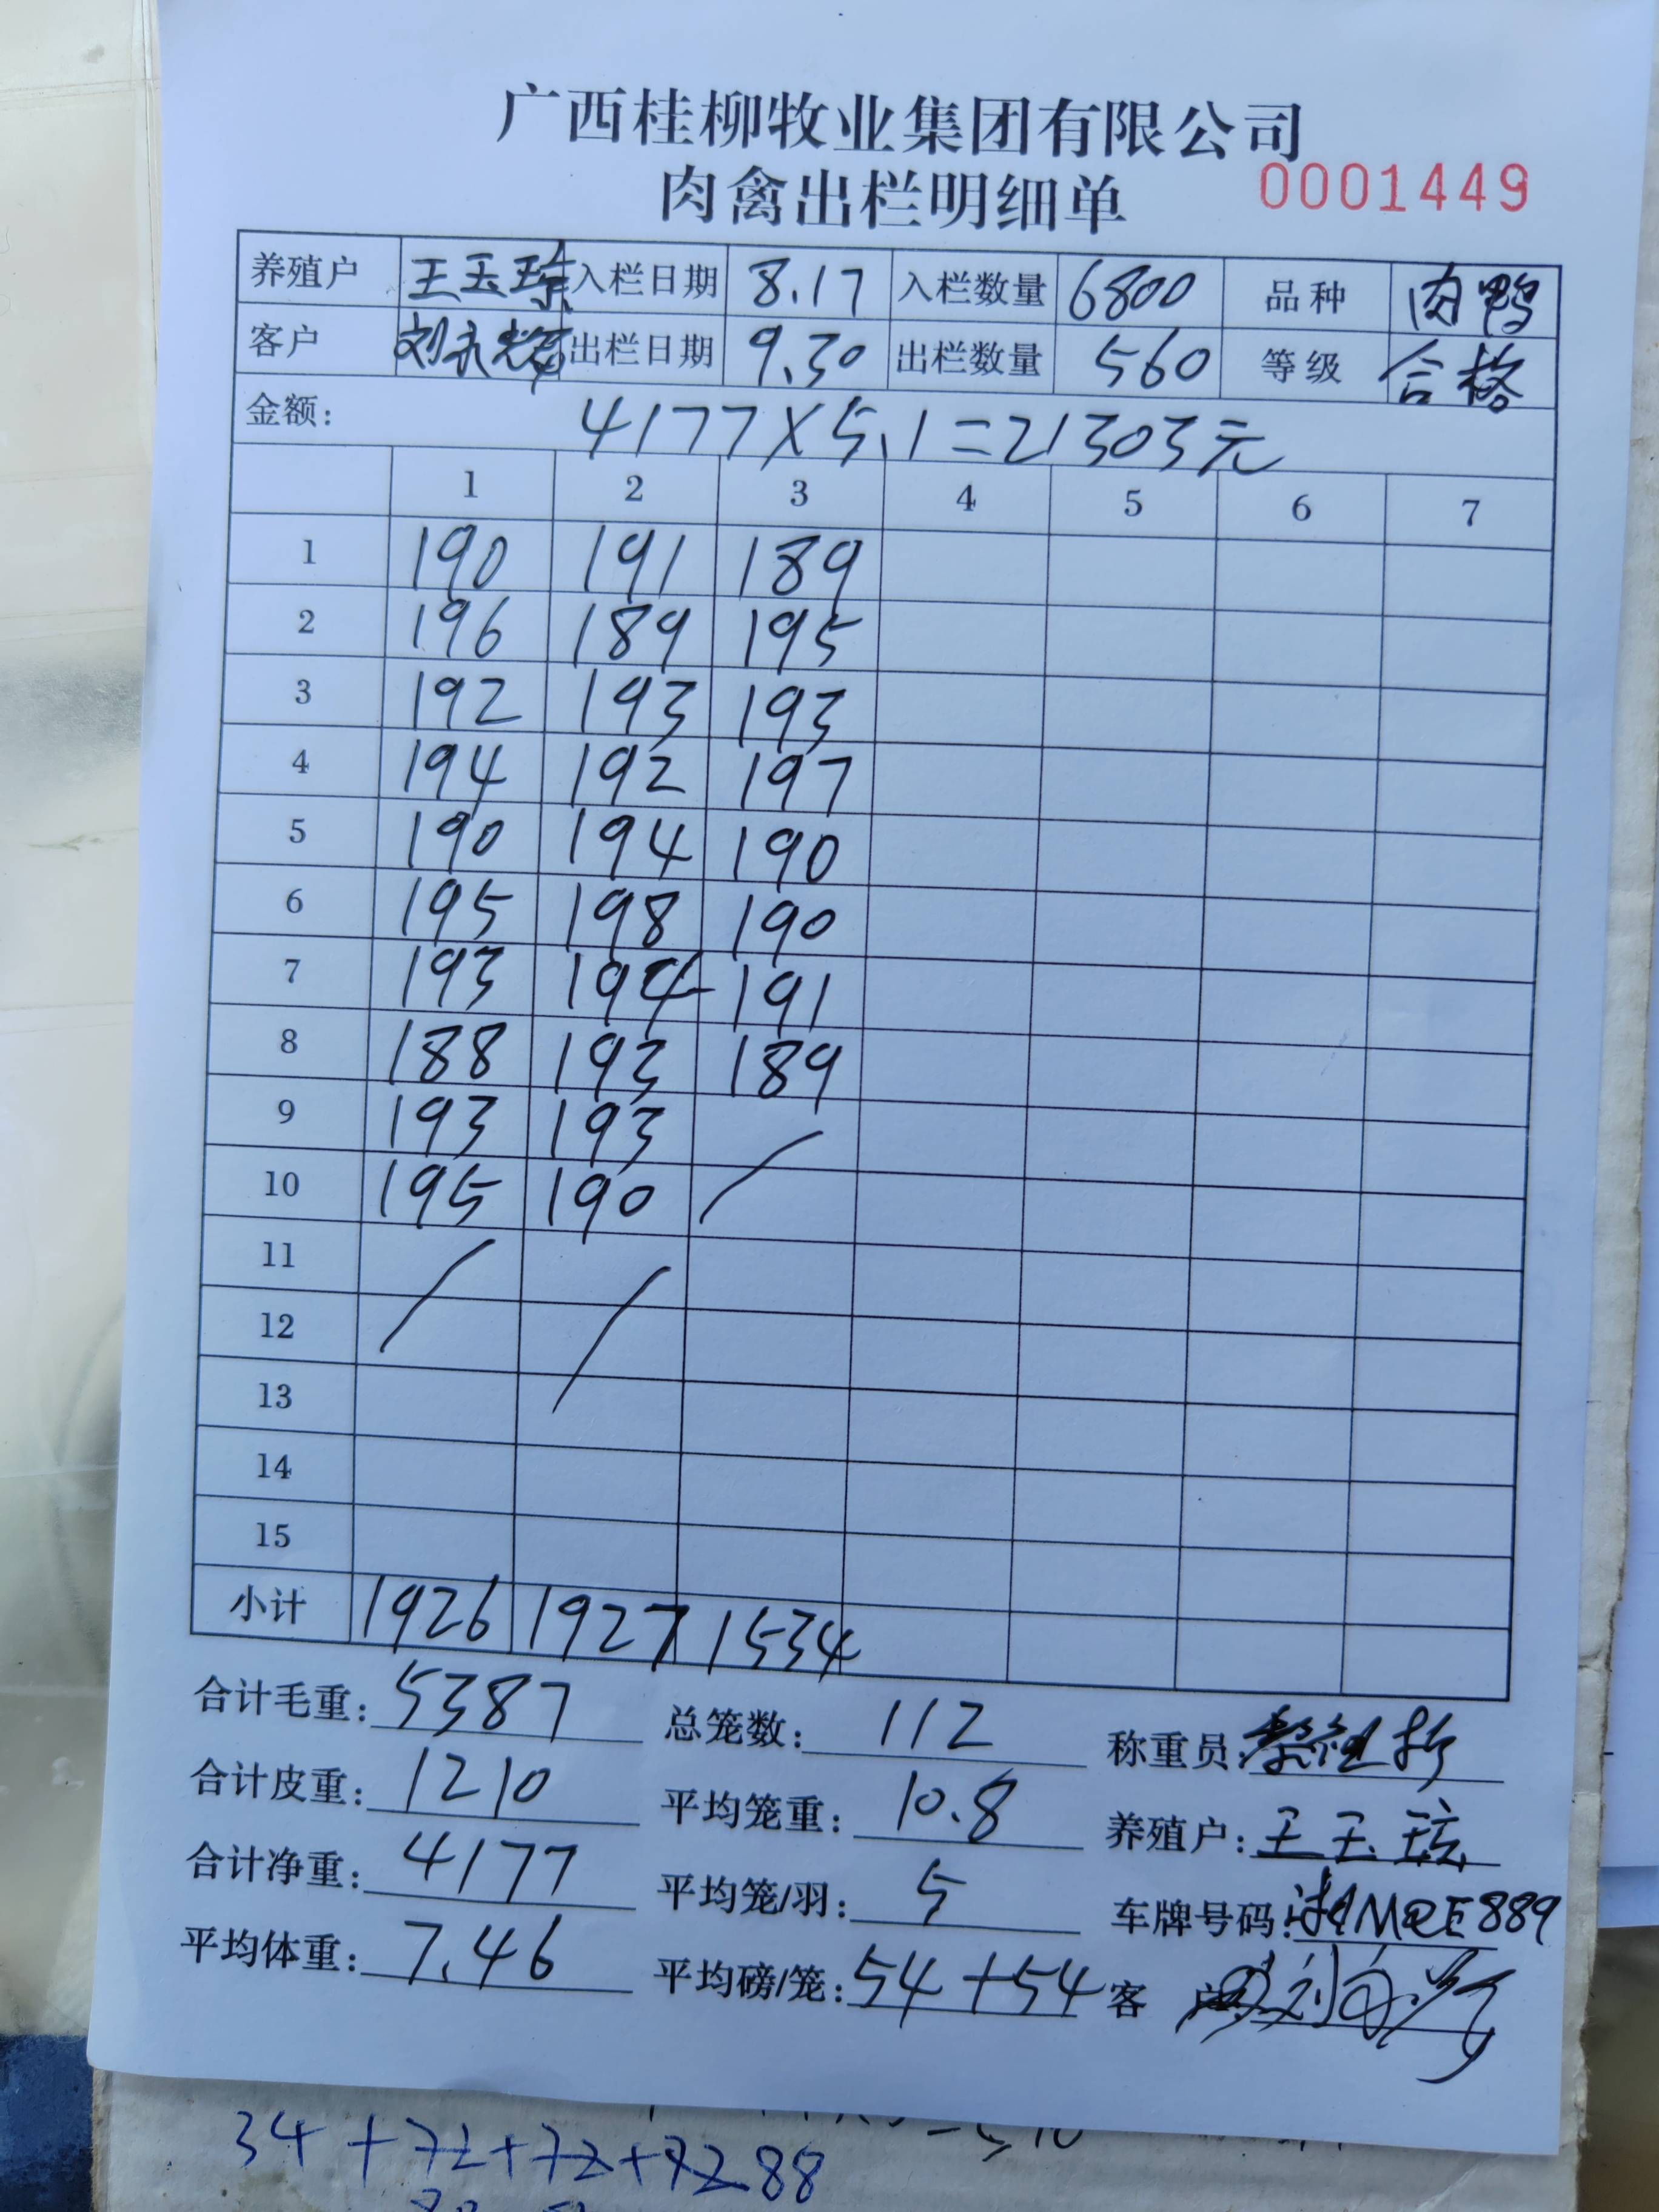 广西桂柳牧业集团有限公司
肉禽出栏明细单 0001449
养殖户 王玉琼 入栏日期 8.17 入栏数量 6800 品种 肉鸭
客户 刘永 出栏日期 9.30 出栏数量 560 等级 合格
金额: 4177×5.1=21303元
1 2 3 4 5 6 7
1 190 191 189
2 196 189 195
3 192 193 193
4 194 192 197
5 190 194 190
6 195 198 190
7 193 194 191
8 188 193 189
9 193 193
10 195 190
11
12
13
14
15
小计 1926 1927 1534
合计毛重: 5387 总笼数: 112 称重员:
合计皮重: 1210 平均笼重: 10.8 养殖户: 王玉
合计净重: 4177 平均笼/羽: 5 车牌号码: E889
平均体重: 7.46 平均磅/笼: 54+54 客户
34+72+72+
88